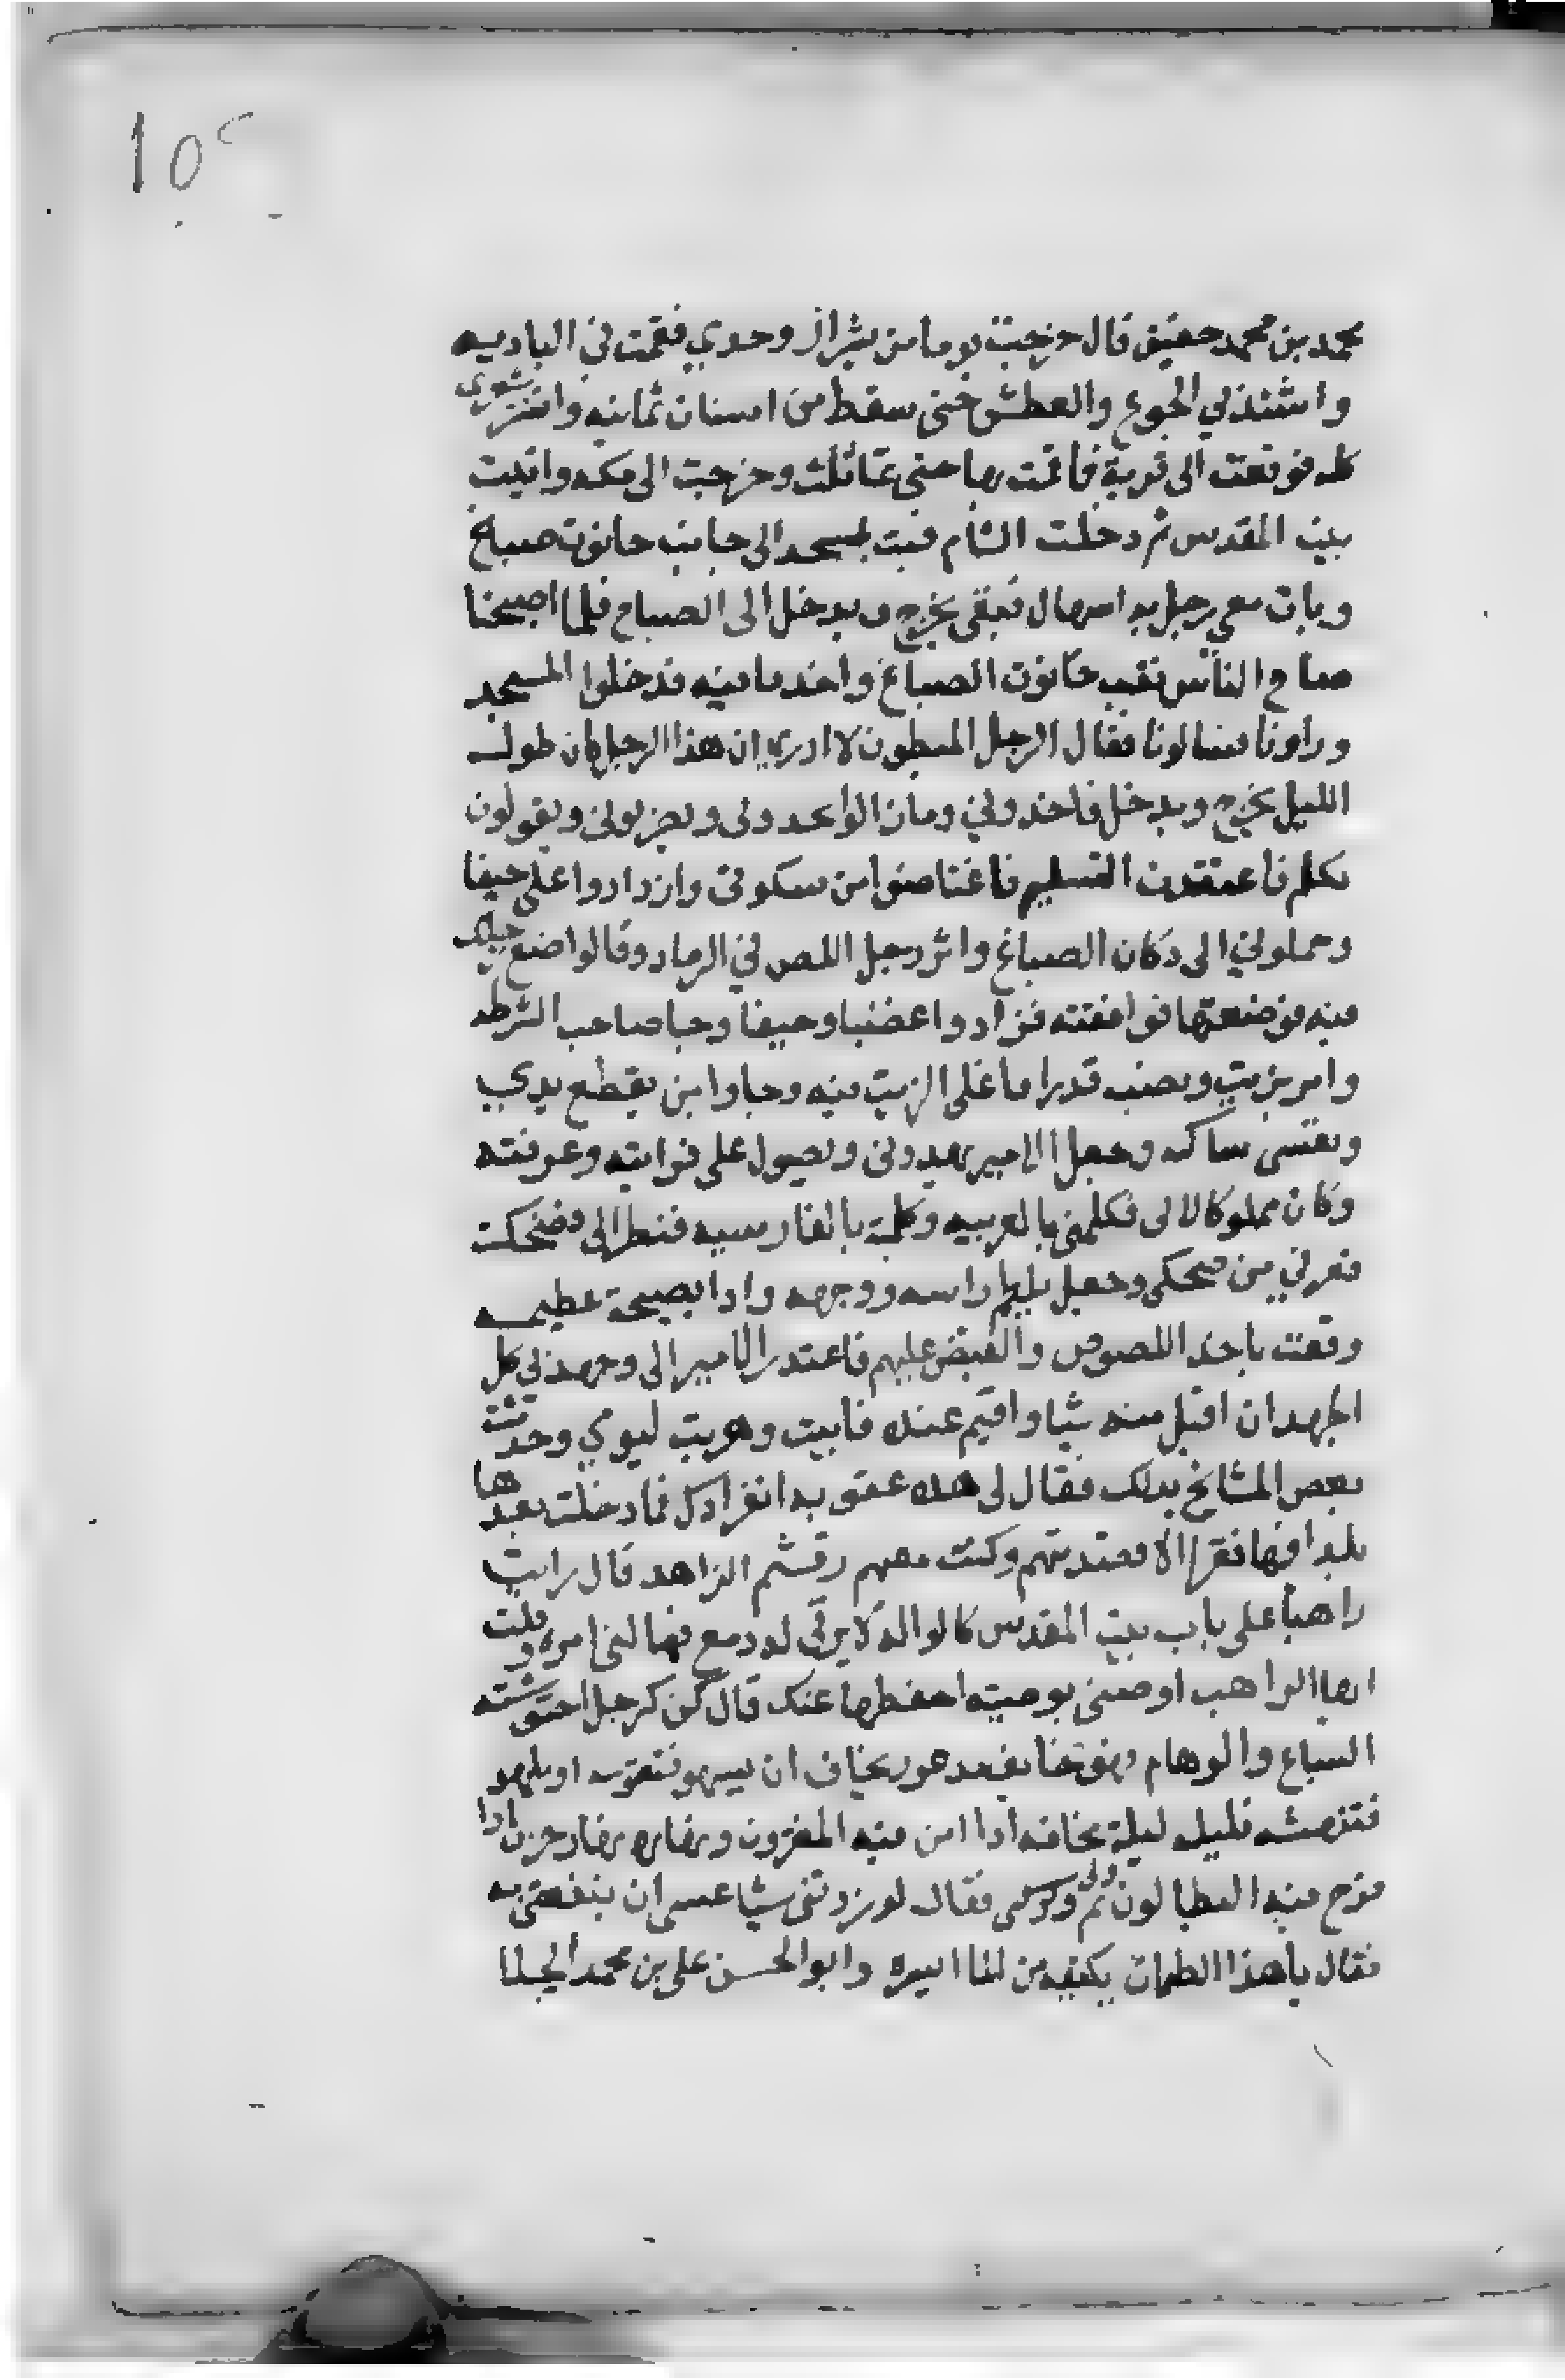 ١٥٢
محمد بن محمد حفيف قال خرجت يوما من شيراز وحدي فقمت في الباديه
واشتد بي الجوع والعطش حتى سقط من اسنان ثمانيه وانتثر شعري
كله فوقعت الى قرية فاقمت بها حتى تماثلت وخرجت الى مكه واتيت
بيت المقدس ثم دخلت الشام فبت بمسجد الى جانب حانوت صباغ
وبات معي رجل به اسهال فبقى يخرج ويدخل الى الصباح فلما اصبحنا
صاح الناس نقب حانوت الصباغ واخذ ما فيه فدخلوا المسجد
وراونا فسالونا فقال الرجل المبطون لا ادري ان هذا الرجل كان طول
الليل يخرج ويدخل فاخذوني وما زالوا يجروني ويضربوني ويقولون
تكلم فاعتقدت التسليم فاغتاضوا من سكوتي وازدادوا على حيفا
وحملوني الى دكان الصباغ واثر رجل اللص في الرماد وقالوا اضع رجلك
فيه فوضعتها فوافقته فزادوا غضبا وحيفا وجا صاحب الشرطه
وامر بزيت ونصب قدرا ما غلى الزيت فيه وجاوا من يقطع يدي
ونفسى ساكنه وجعل الامير يهددوني ويصول على فراسته وعرفته
وكان مملوكا لابي فكلمني بالعربيه وكلمته بالفارسيه فنظر الي وضحكت
فعرفني من ضحكي وجعل يلطم راسه ووجهه واذا بصيحة عظيمه
وقعت باخذ اللصوص والقبض عليهم فاعتذر الامير الى وجهد بي كل
الجهد ان اقبل منه شيا واقيم عنده فابيت وهربت ليومي وحدثت
بعض المشايخ بذلك فقال لي هذه عقوبه انفرادك فما دخلت بعدها
بلدا فيها فقرا الا قصدتهم وكنت معهم رقشم الزاهد قال رايت
راهبا على باب بيت المقدس كالواله لا يرقى له دمع فهالني امره وقلت
ايها الراهب اوصني بوصيته احفظها عنك قال كن كرجل احتوشته
السباع والهوام فهو خايف مذعور يخاف ان يسهو فتفترسه او يلهو
فتنهشه فليله ليلة مخافه اذا امن فيه المغترون ونهاره نهار حزن اذا
فرح فيه البطالون ثم ولى وتركني فقال لو زدتني شيا عسى ان ينفعني به
فقال يا هذا الظمان يكفيه من الما ايسره وابو الحسن علي بن محمد الجلا